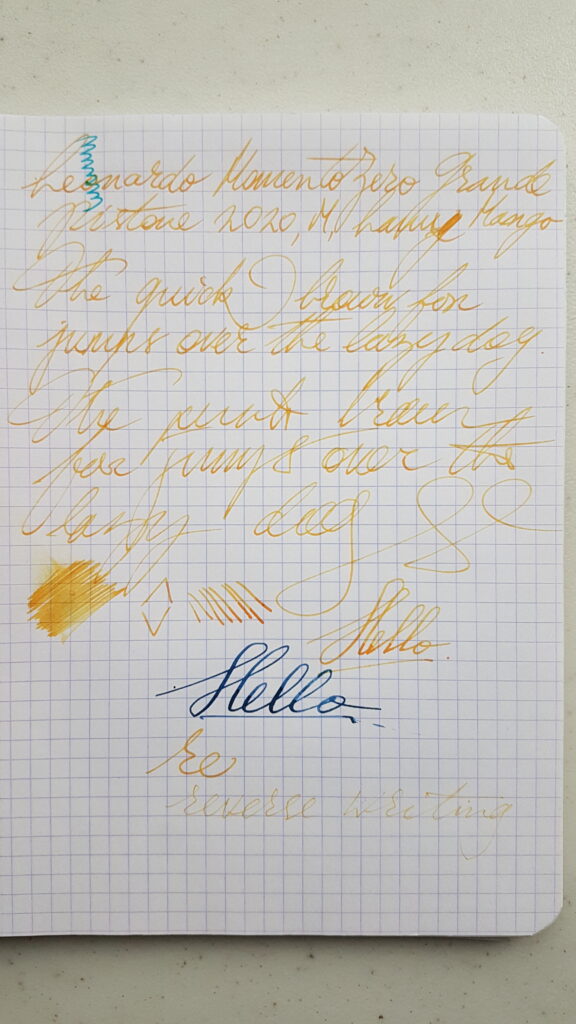 Leonardo Momento Zero Grande
Pistone 2020, M, Mango
The quick brown fox
jumps over the lazy dog
The quick brown
fox jumps over the
lazy dog
Hello
Hello
re
reverse writing